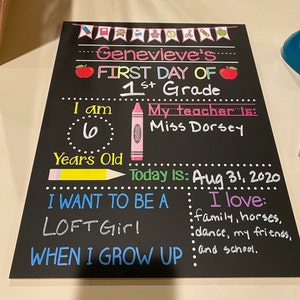 Genevieve's
FIRST DAY OF
1st Grade
I am
6
Years Old
My teacher is:
Miss Dorsey
Today is: Aug 31, 2020
I WANT TO BE A
LOFT Girl
WHEN I GROW UP
I love:
family, horses,
dance, my friends,
and school.